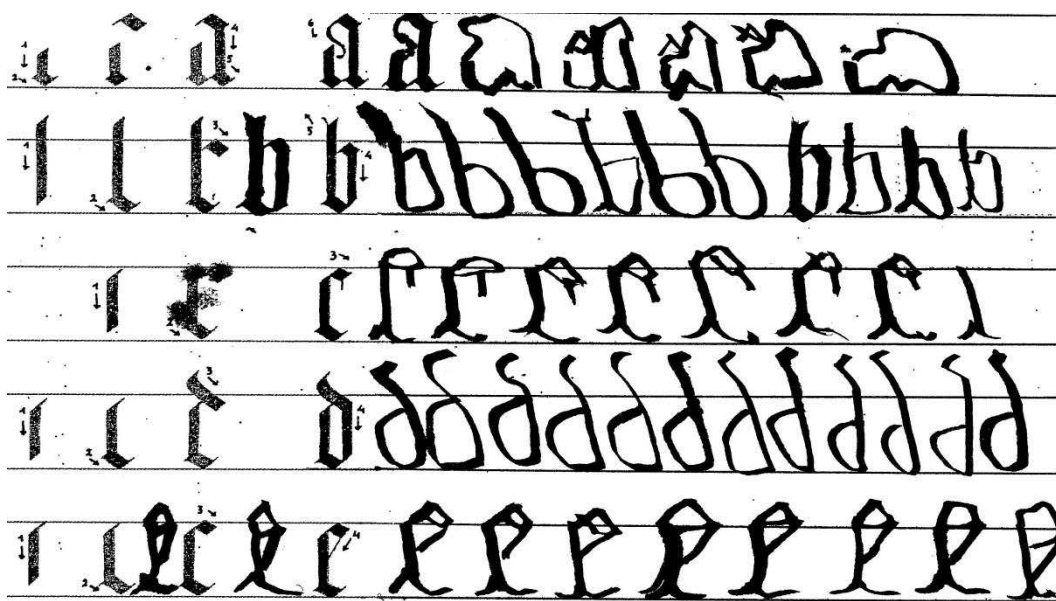 a a a a a a a
b b b b b b b b b b b b
c c c c c c c c
d d d d d d d d d d d d d
e e e e e e e e e e e